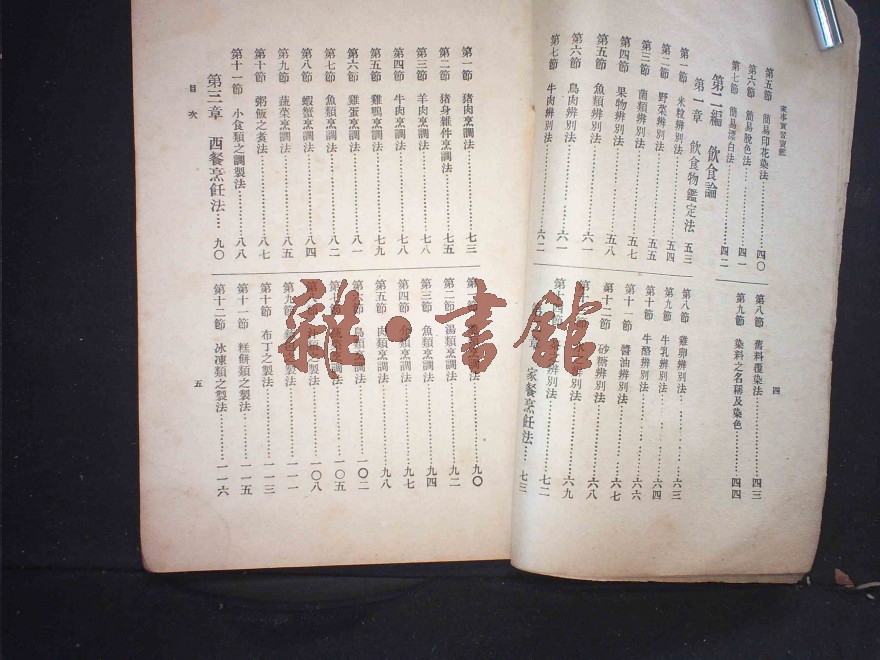 家事實習寶鑑
四
第五節 簡易印花染法 四〇
第六節 簡易脫色法 四一
第七節 簡易漂白法 四二
第八節 舊料覆染法 四三
第九節 染料之名稱及染色 四四
第二編 飲食論
第一章 飲食物鑑定法 五三
第一節 米粒辨別法 五四
第二節 野菜辨別法 五五
第三節 菌類辨別法 五七
第四節 果物辨別法 五八
第五節 魚類辨別法 六一
第六節 鳥肉辨別法 六一
第七節 牛肉辨別法 六二
第八節 雞卵辨別法 六三
第九節 牛乳辨別法 六四
第十節 牛酪辨別法 六六
第十一節 醬油辨別法 六七
第十二節 砂糖辨別法 六八
辨別法 六九
辨別法 七二
家餐烹飪法 七三
第一節 豬肉烹調法 七三
第二節 豬身雜件烹調法 七五
第三節 羊肉烹調法 七八
第四節 牛肉烹調法 七八
第五節 雞鴨烹調法 七九
第六節 雞蛋烹調法 八一
第七節 魚類烹調法 八二
第八節 蝦蟹烹調法 八四
第九節 蔬菜烹調法 八五
第十節 粥飯之煑法 八七
第十一節 小食類之調製法 八八
第三章 西餐烹飪法 九〇
烹調法 九〇
第二節 湯類烹調法 九二
第三節 魚類烹調法 九四
第四節 烹調法 九七
第五節 肉類烹調法 九八
第六節 鳥類烹調法 一〇二
烹調法 一〇五
之製法 一〇八
第九節 之製法 一一一
第十節 布丁之製法 一一三
第十一節 糕餅類之製法 一一五
第十二節 冰凍類之製法 一一六
目次
五
雜·書館